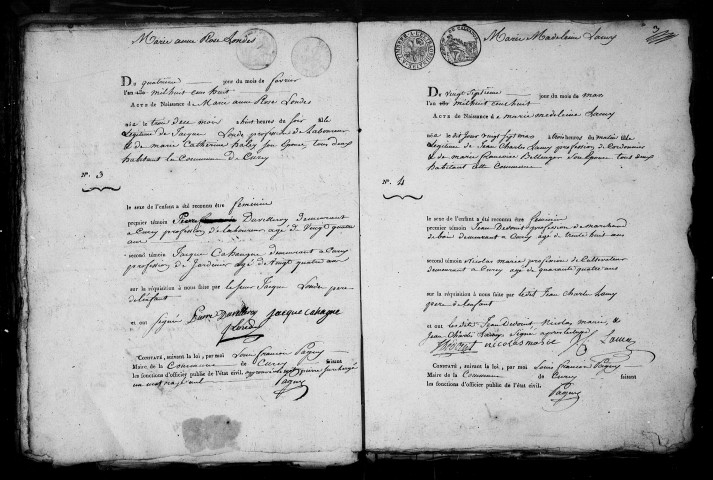 Marie anne Rose Londes
Du quatrieme jour du mois de fevrier
l'an mil huit cent huit
Acte de Naissance de Marie anne Rose Londes
née le trois dece mois huit heures du soir fille
Legitime de Jacque Londe profession de Laboureur
& de marie Catherine haley son epouse tous deux
habitant la Commune De Curcy
N°. 3
le sexe de l'enfant a été reconnu être feminin
premier témoin Pierre Davilleroy demeurant
a Curcy profession de laboureur agé de Vingt quatre
ans
second témoin Jacque Cahagne demeurant a Curcy
profession de Jardinier agé de Vingt quatre ans
sur la réquisition à nous faite par le sieur Jacque Londe pere
de lenfant
et ont signé Pierre Davilleroy Jacque Cahagne
Londe
Constaté, suivant la loi, par moi Louis francois Pagny
Maire de la Commune de Curcy faisant
les fonctions d'officier public de l'état civil.
un mot rayé nul
Pagny
3
Marie Madeleine Lamy
Du Vingt Septième jour du mois de mars
l'an mil huit cent huit
Acte de Naissance de marie madeleine Lamy
née le dit jour vingt sept mars heures du matin fille
Legitime de Jean Charles Lamy profession de Cordonnier
& de marie francoise Bellenger son Epouse tous deux
habitant cette Commune
N°. 4
le sexe de l'enfant a été reconnu être feminin
premier témoin Jean Desvoit profession de marchand
de bois demeurant a Curcy agé de trente huit ans
second témoin Nicolas marie profession de Cultivateur
demeurant a Curcy agé de quarante quatre ans
sur la réquisition à nous faite par ledit Jean Charles Lamy
pere de lenfant
et ont les dits Jean Desvoit, Nicolas marie, &
Jean Charles Lamy Signé apres lecture
nicolas marie Lamy
Constaté, suivant la loi, par moi Louis francois Pagny
Maire de la Commune de Curcy faisant
les fonctions d'officier public de l'état civil.
Pagny